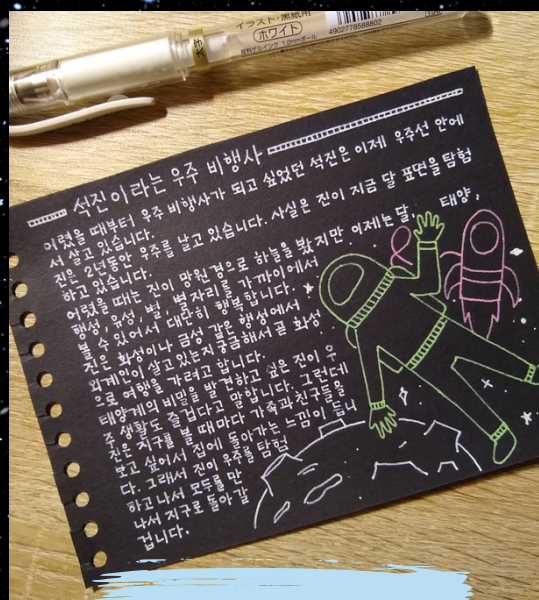 イラスト・黒紙用
ホワイト
太字
4902778588802
顔料ゲルインク 1.0mmボール
석진이라는 우주 비행사
어렸을 때부터 우주 비행사가 되고 싶었던 석진은 이제 우주선 안에
서 살고 있습니다.
진은 2년동안 우주를 날고 있습니다. 사실은 진이 지금 달 표면을 탐험
하고 있습니다.
어렸을 때는 진이 망원경으로 하늘을 봤지만 이제는 달, 태양,
행성, 유성, 별, 별자리를 가까이에서
볼 수 있어서 대단히 행복합니다.
진은 화성이나 금성 같은 행성에서
외계인이 살고 있는지 궁금해서 곧 화성
으로 여행을 가려고 합니다.
태양계의 비밀을 발견하고 싶은 진이 우
주 생활도 즐겁다고 말합니다. 그런데
진은 지구를 볼 때마다 가족과 친구들을
보고 싶어서 집에 돌아가는 느낌이 듭니
다. 그래서 진이 우주를 탐험
하고 나서 모두를 만
나서 지구로 돌아갈
겁니다.